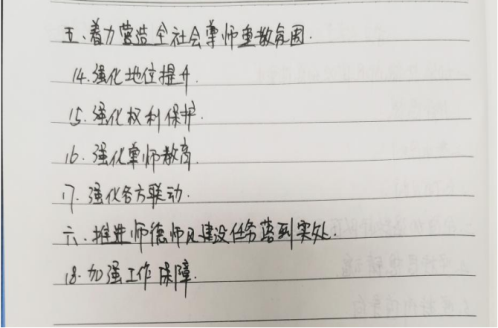 五、着力营造全社会尊师重教氛围.
14.强化地位提升.
15.强化权利保护.
16.强化尊师教育.
17.强化各方联动.
六、推进师德师风建设任务落到实处.
18.加强工作保障.